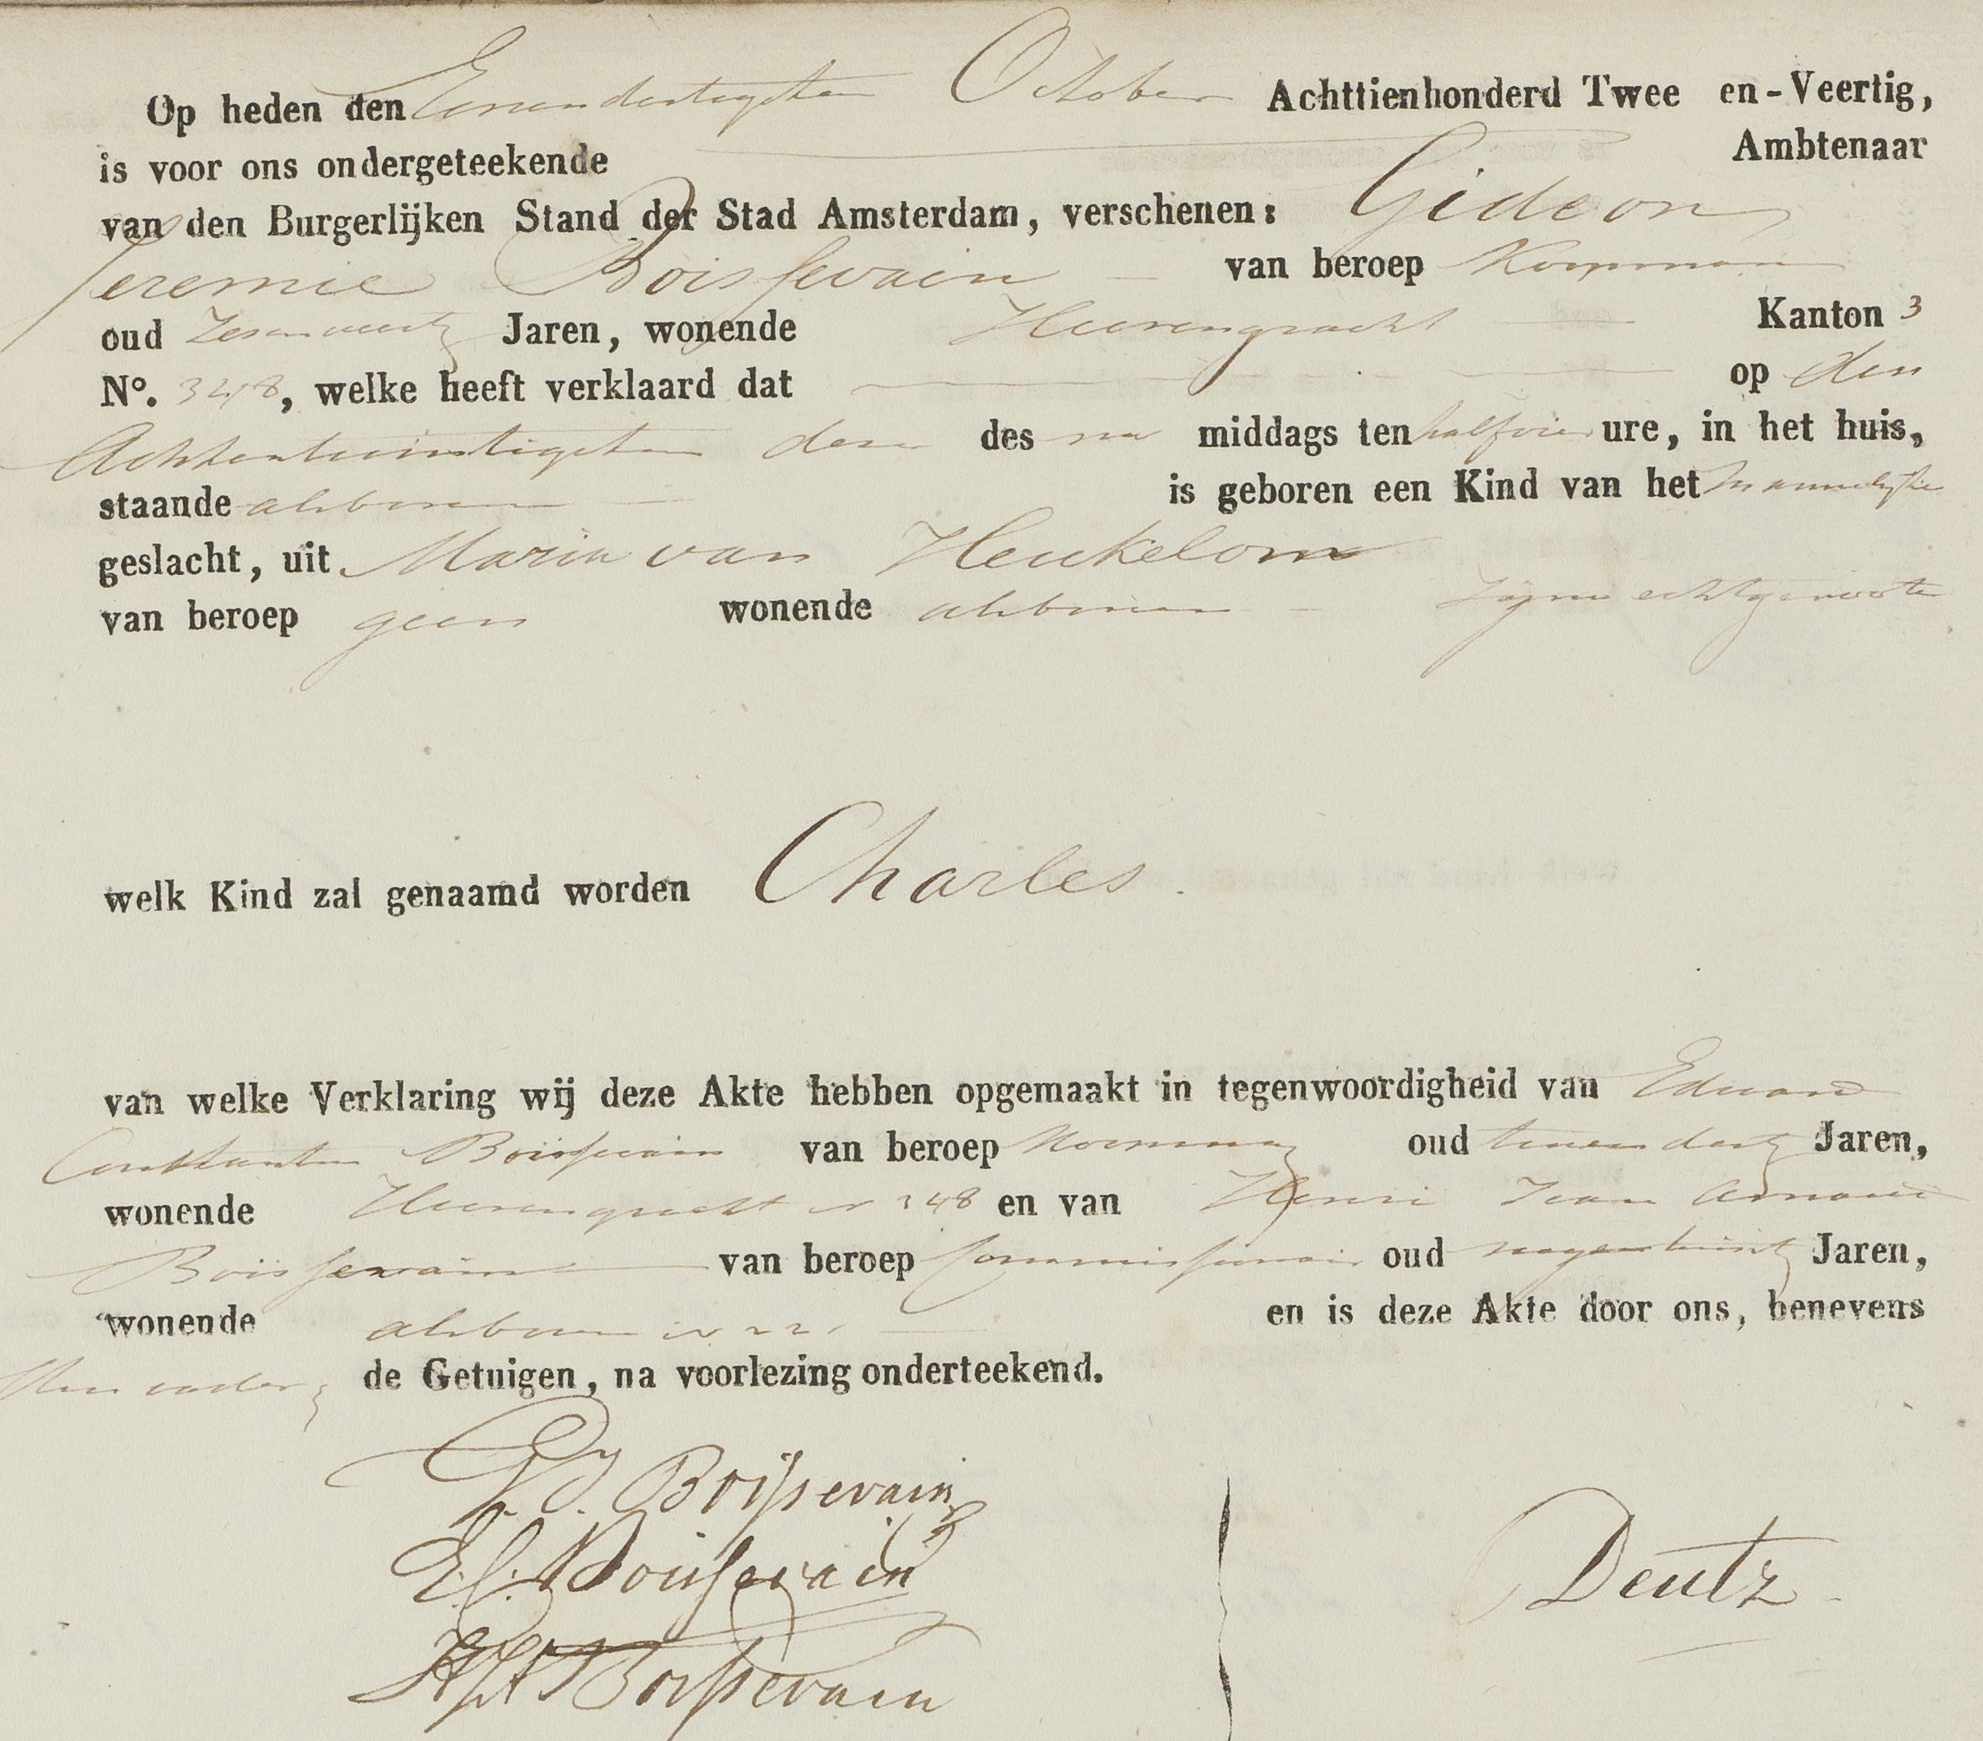 Op heden den Eenendertigsten October Achttienhonderd Twee en-Veertig,
is voor ons ondergeteekende Ambtenaar
van den Burgerlijken Stand der Stad Amsterdam, verschenen: Gideon
Jeremie Boissevain van beroep Koopman
oud Zesenveertig Jaren, wonende Heerengracht Kanton 3
N°. 348, welke heeft verklaard dat op den
Achtentwintigsten dezer des na middags ten half vier ure, in het huis,
staande alsboven is geboren een Kind van het Mannelijke
geslacht, uit Maria van Heukelom
van beroep geen wonende alsboven zijne echtgenoote
welk Kind zal genaamd worden Charles.
van welke Verklaring wij deze Akte hebben opgemaakt in tegenwoordigheid van Eduard
Constantin Boissevain van beroep Koopman oud Jaren,
wonende Heerengracht N 348 en van Henri Jean Arnaud
Boissevain van beroep Commissionair oud negentwintig Jaren,
wonende alsboven en is deze Akte door ons, benevens
den vader de Getuigen, na voorlezing onderteekend.
G. J. Boissevain
E. C. Boissevain
HJA Boissevain
Deutz